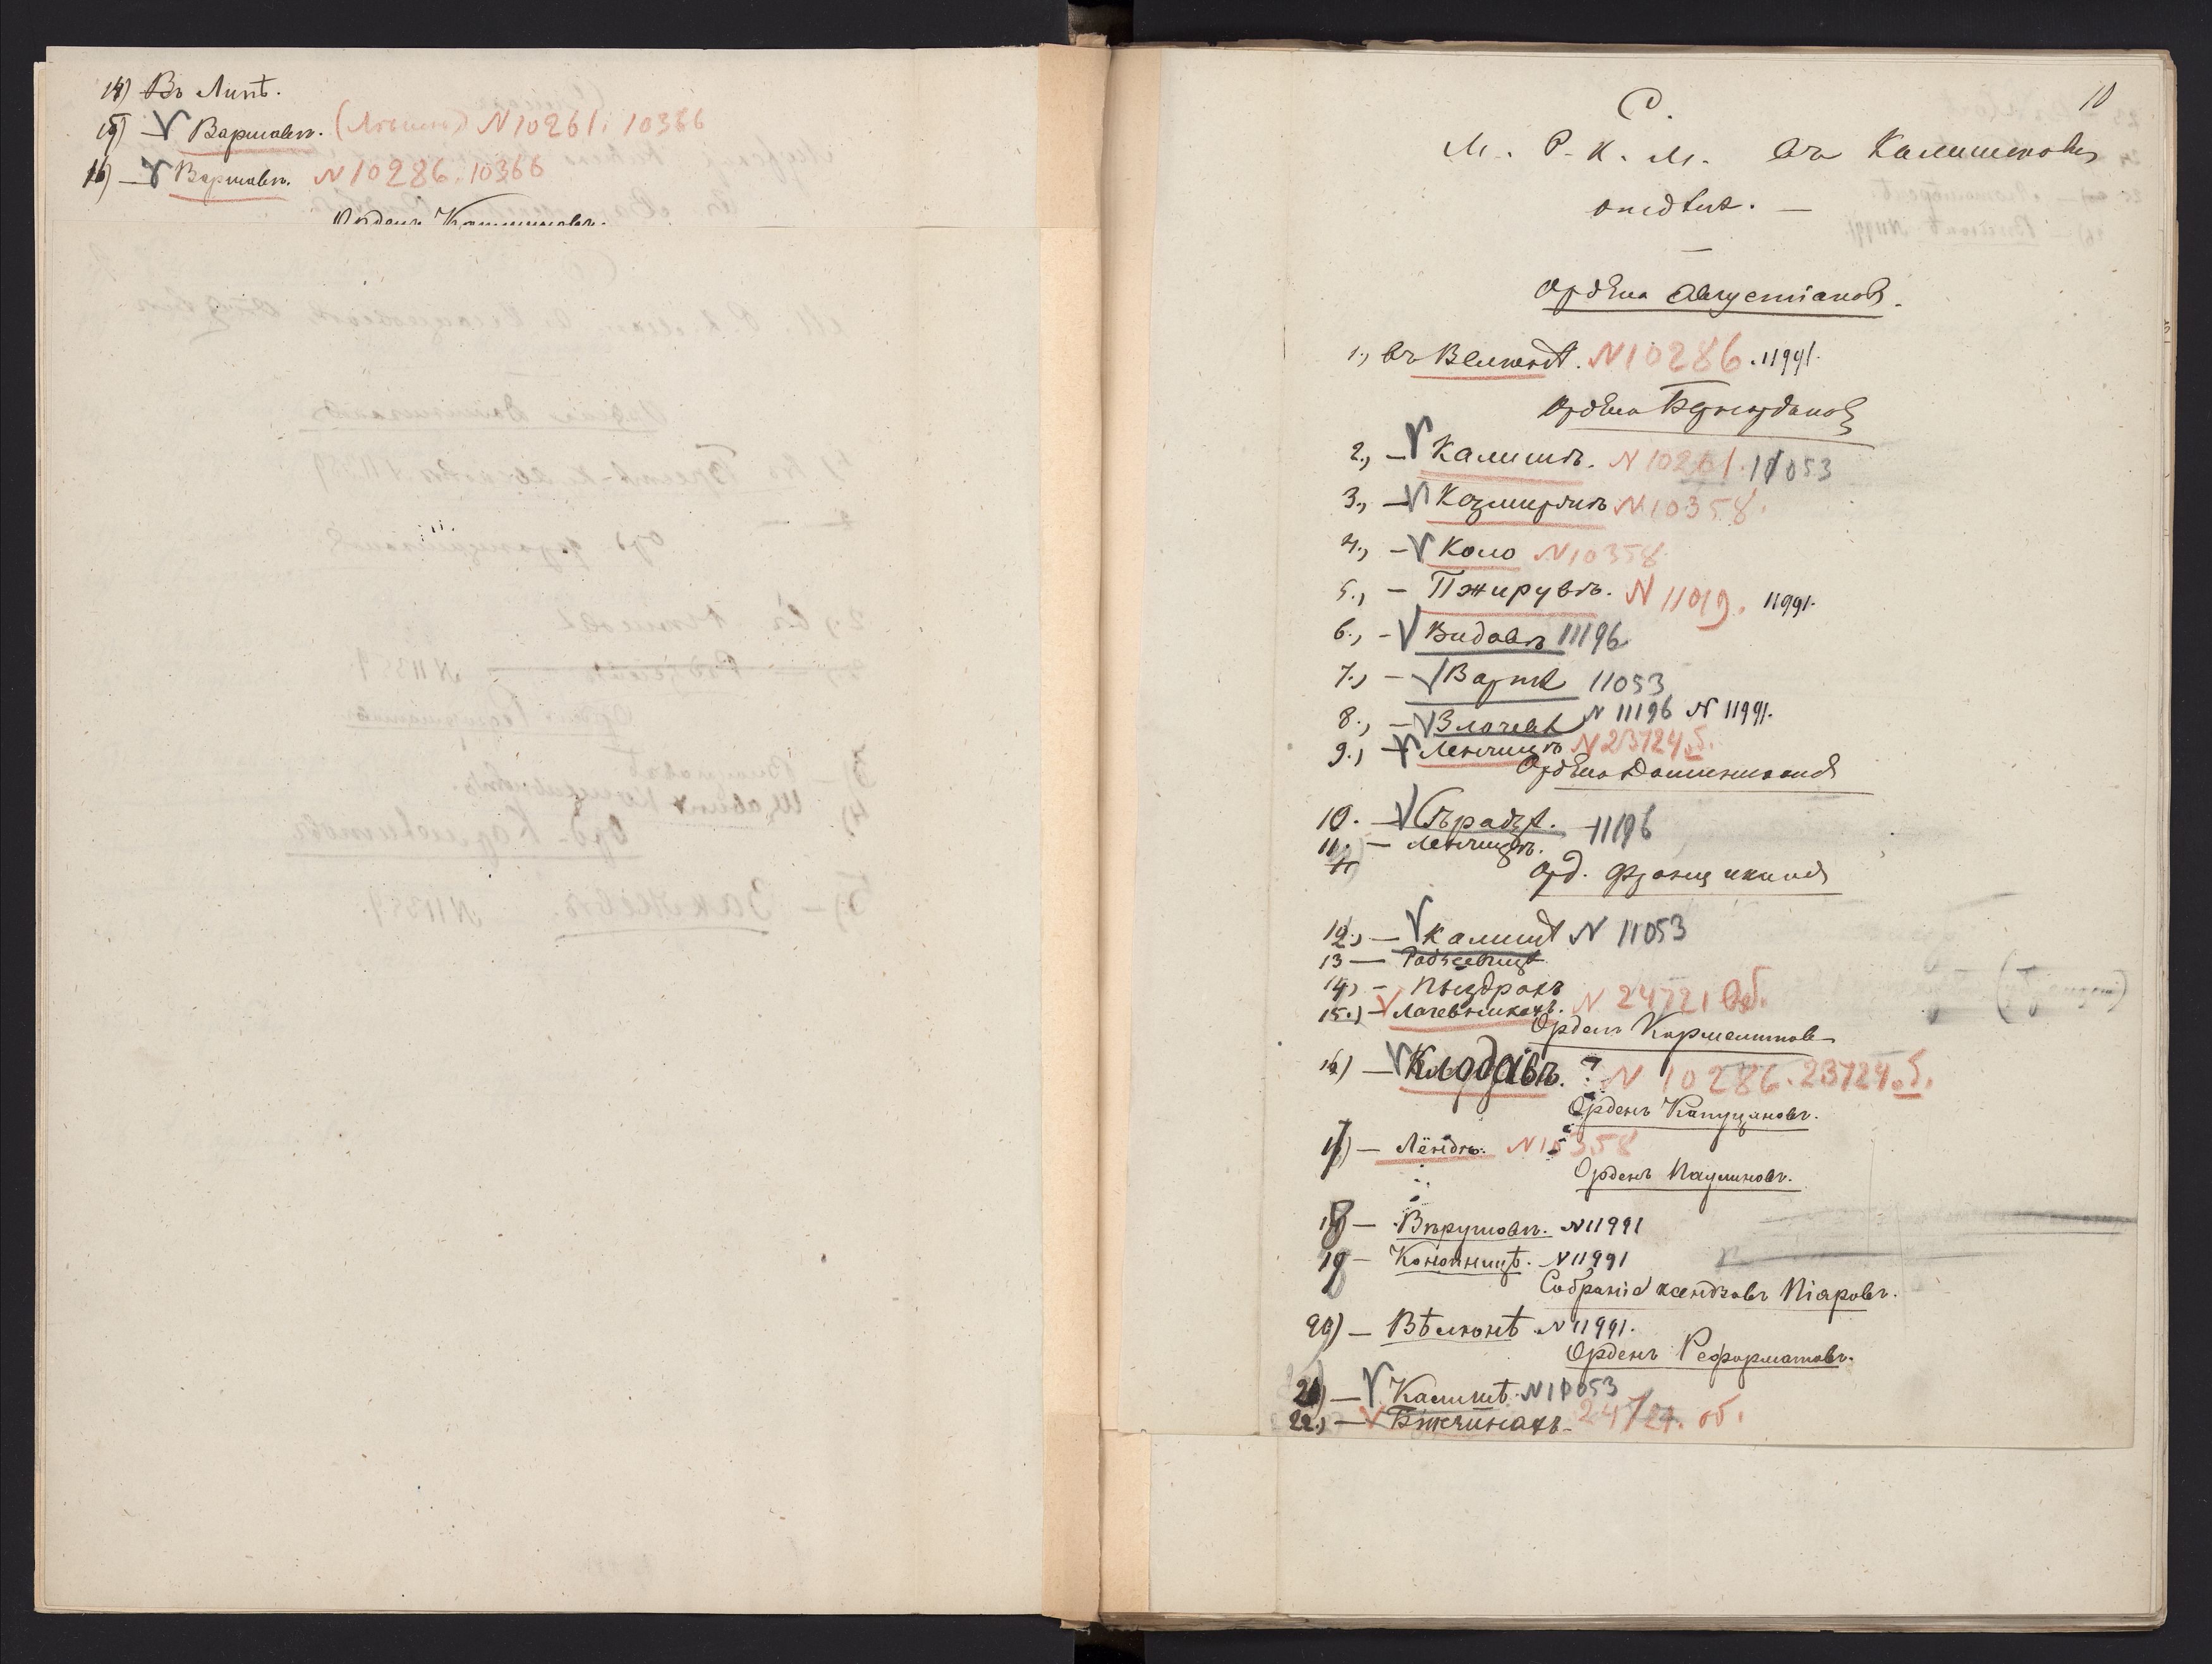 14) Въ Липѣ.
15) — V Варшавѣ. N 10261. 10386
16) — V Варшавѣ. N 10286. 10366
Орденъ
10
С.
М. Р. К. М. въ Калишскомъ
отдѣлѣ. —
Ордена Августіановъ.
1., въ Велюнѣ. N 10286. 11991.
Ордена Бернардиновъ
2., — V Калишѣ. N 10261. 11053
3., — V Казимирѣ N 10358.
4., — V Коло N 10358
5., — Пжирувѣ. N 11019. 11991.
6., — V Видавѣ 11196
7., — V Вартѣ 11053
8., — V Злочевѣ N 11196 N 11991.
9.) — V Ленчицѣ N 23724 об.
Ордена Доминикановъ
10. — V Сѣрадзѣ. 11196
11. — Ленчицѣ.
Орд. Францискановъ
12., — V Калишѣ N 11053
13 — Радзеевицѣ
14) — Пыздрахъ
15.) — V Лагевникахъ. N 24721 об.
Орденъ Кармелитовъ
16) — V Клодавѣ. ? N 10286. 23724 об.
Орденъ Капуциновъ.
17) — Лёндѣ. N 10358
Орденъ Паулиновъ.
18 — Вѣрушовѣ. N 11991
19 — Конопницѣ. N 11991
Собраніе ксендзовъ Піаровъ.
20) — Вѣлюнѣ N 11991.
Орденъ Реформатовъ.
21) — V Калишѣ. N 11053
22.) — V Бжезинахъ — 24721. об.